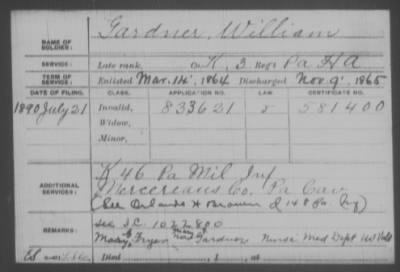 NAME OF SOLDIER: Gardner, William
SERVICE: Late rank, Co. K, 3 Reg't Pa H A
TERM OF SERVICE: Enlisted Mar. 14, 1864 Discharged Nov 9, 1865
DATE OF FILING. CLASS. APPLICATION NO. LAW CERTIFICATE NO.
1890 July 21 Invalid, 833621 581400
Widow,
Minor,
K 46 Pa Mil Inf
ADDITIONAL SERVICES: Co. Pa Cav
(See Orlando H Brown Q 148 Pa Inf)
REMARKS: see S.C. 1022880
Mary Fryer Gardner Nurse Med Dept US Vols
Died , 1 , at